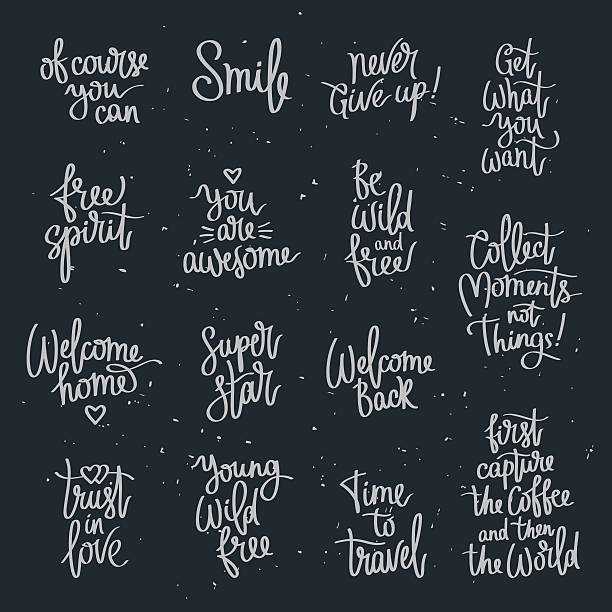 of course
you
can
Smile
never
Give up!
Get
What
you
want
free
spirit
you
are
awesome
Be
Wild
and
free
Collect
Moments
not
Things!
Welcome
home
Super
Star
Welcome
Back
first
capture
the Coffee
and then
the World
trust
in
love
young
Wild
free
Time
to
travel